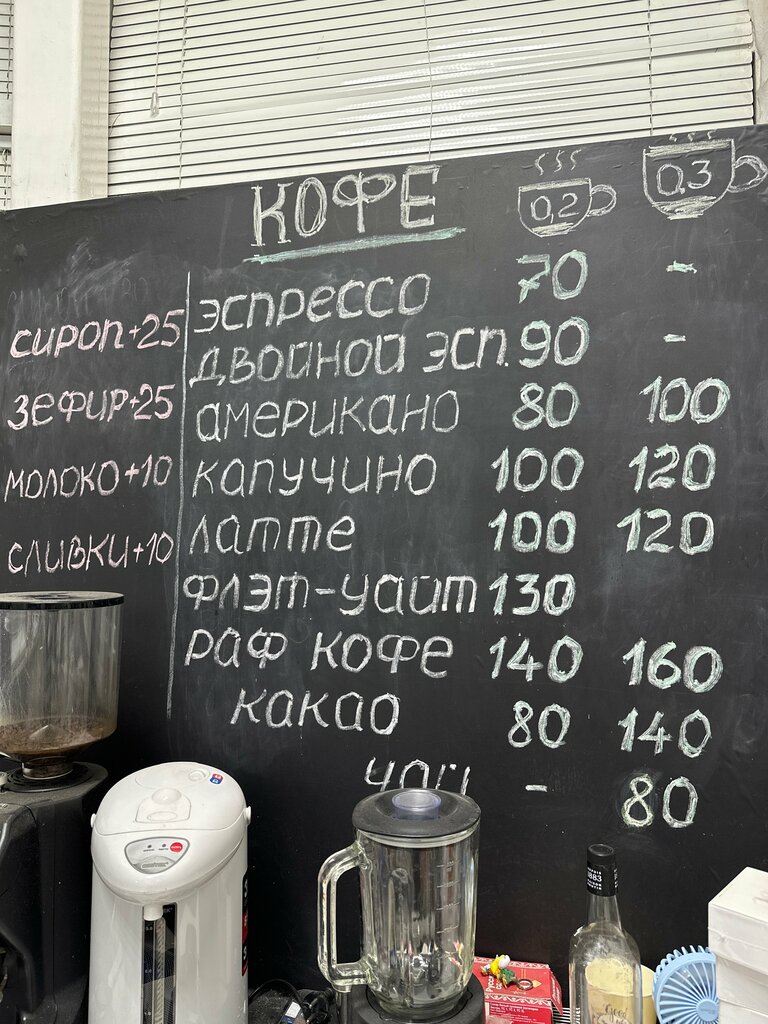 КОФЕ 0,2 0,3
ЭСПРЕССО 70 -
ДВОЙНОЙ ЭСП. 90 -
американо 80 100
капучино 100 120
латте 100 120
флэт-уайт 130
раф кофе 140 160
какао 80 140
чай - 80
сироп+25
зефир+25
молоко+10
сливки+10
1883